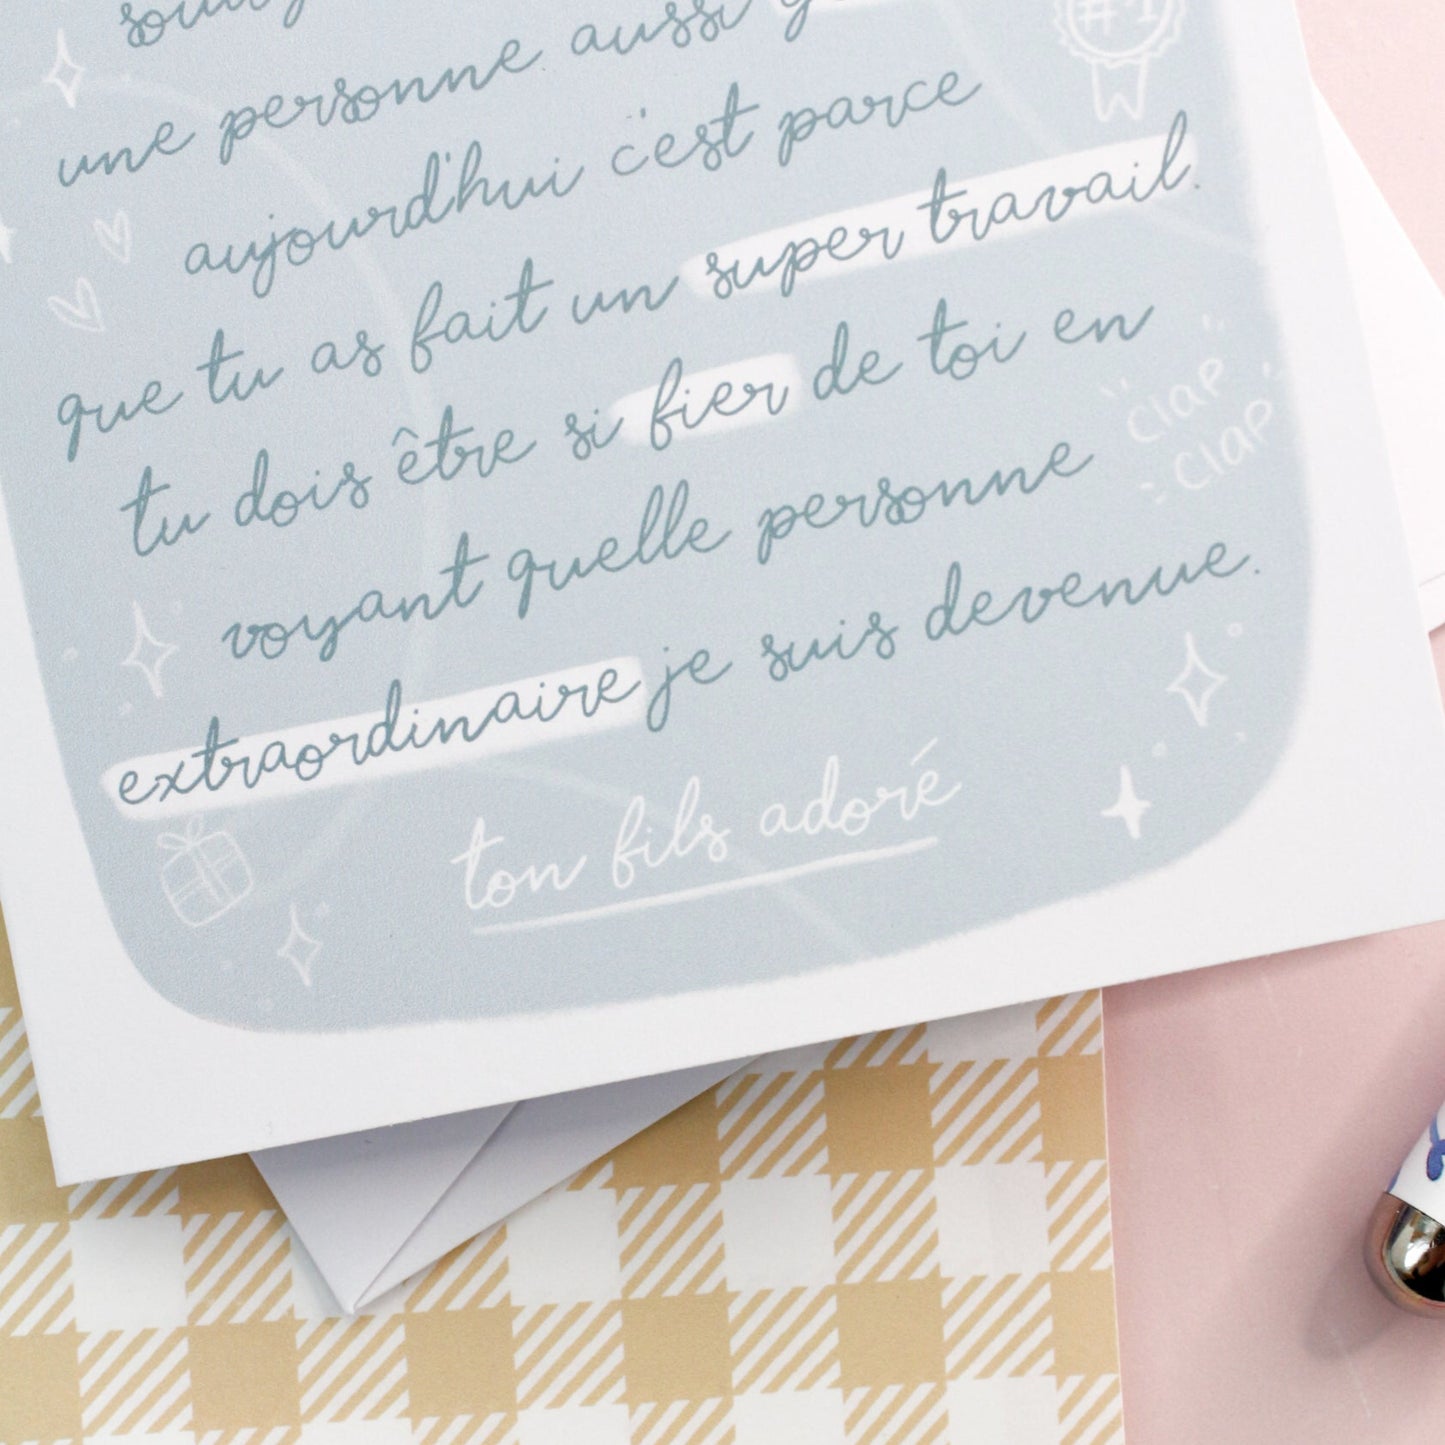 une personne aussi
#1
aujourd'hui c'est parce
que tu as fait un super travail.
tu dois être si fier de toi en
clap
clap
voyant quelle personne
extraordinaire je suis devenue.
ton fils adoré